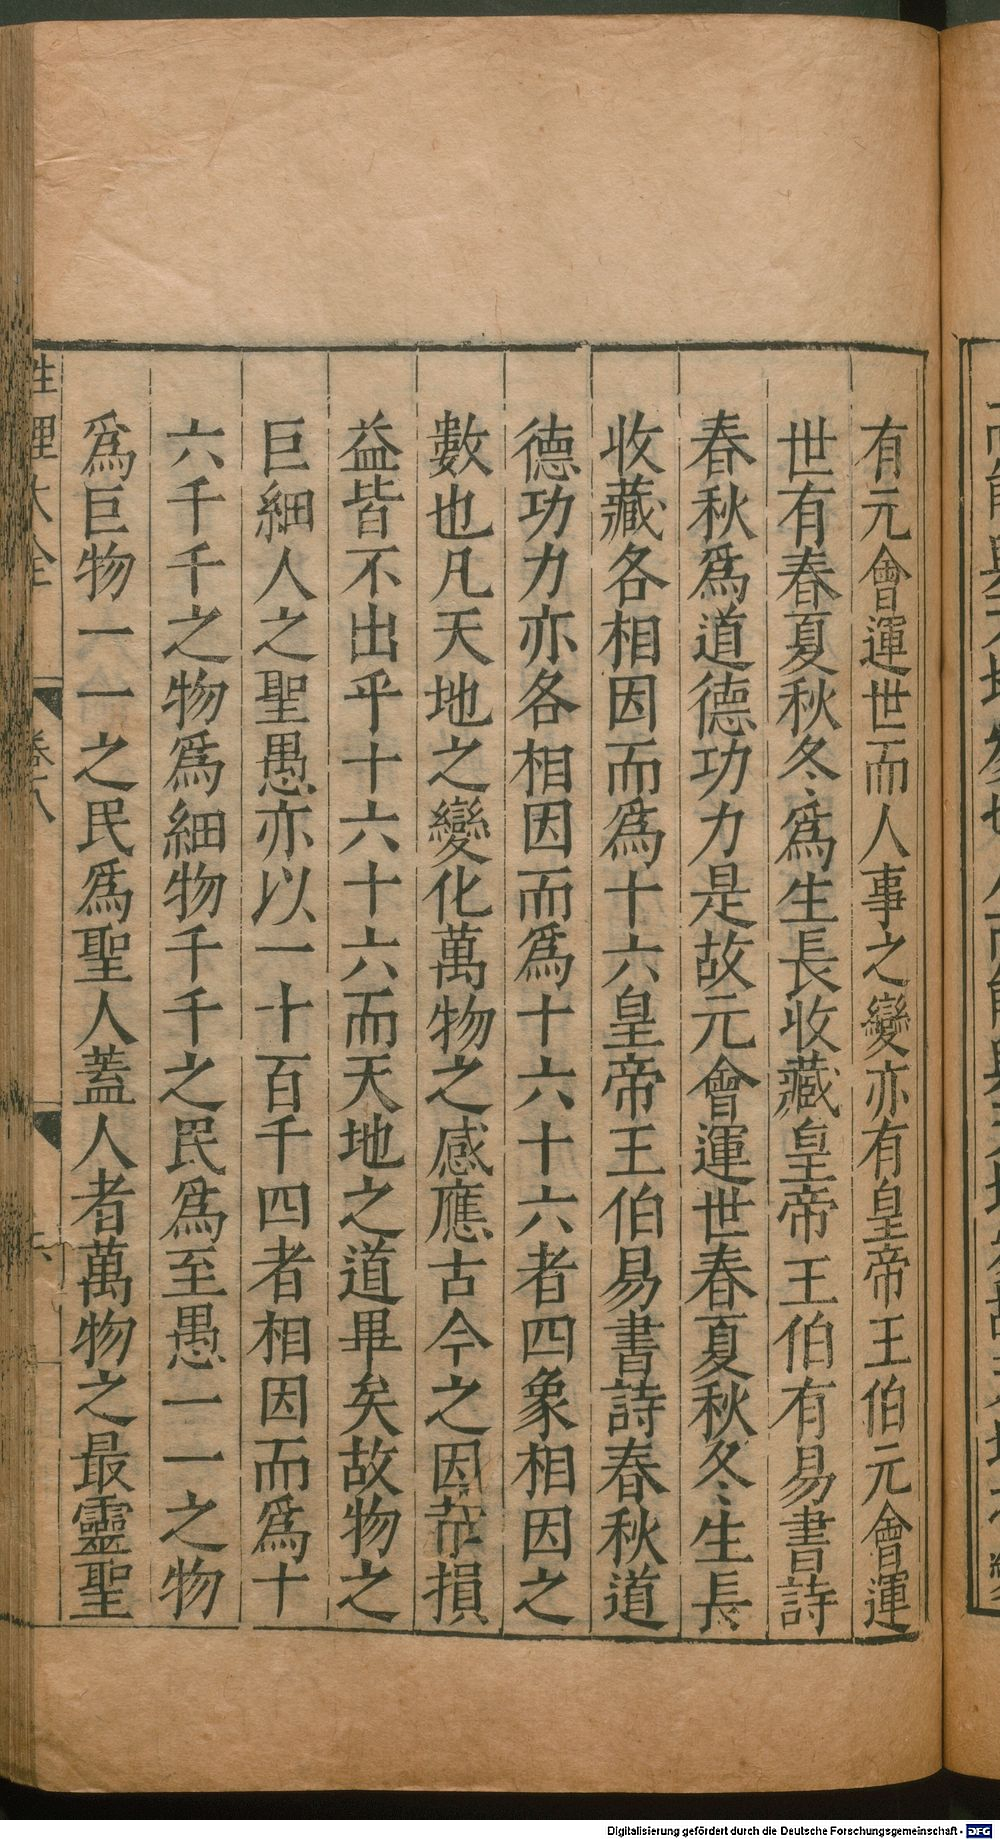 有元會運世而人事之變亦有皇帝王伯元會運
世有春夏秋冬爲生長收藏皇帝王伯有易書詩
春秋爲道德功力是故元會運世春夏秋冬生長
收藏各相因而爲十六皇帝王伯易書詩春秋道
德功力亦各相因而爲十六十六者四象相因之
數也凡天地之變化萬物之感應古今之因革損
益皆不出乎十六十六而天地之道畢矣故物之
巨細人之聖愚亦以一十百千四者相因而爲十
六千千之物爲細物千千之民爲至愚一一之物
爲巨物一一之民爲聖人蓋人者萬物之最靈聖
性理大全 卷八
Digitalisierung gefördert durch die Deutsche Forschungsgemeinschaft - DFG